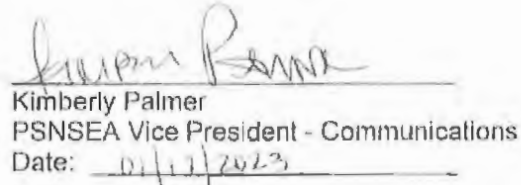 Kimberly Palmer
PSNSEA Vice President - Communications
Date: